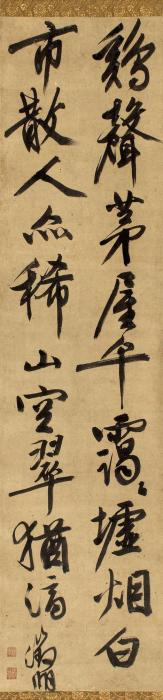 鷄聲茅屋午靄〻墟烟白
市散人亦稀山空翠猶滴
徵明